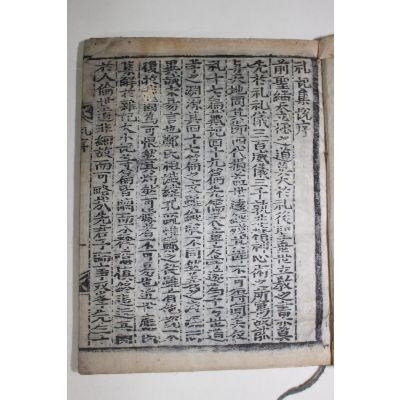 礼記集說序
前聖繼天立極之道莫大於礼後聖垂世立教之書亦莫
先於礼礼儀三百威儀三千孰非精神心術之所寓故能
與天地同其節四代損益世遠經殘其詳不可得聞矣儀
礼十七篇戴記四十九篇先儒表章庸學遂為千万世道
學之淵源其四十七篇之文雖純駁不同然義之淺深同
異誠未易言也鄭氏祖讖緯孔疏惟鄭之從雖有他說不
復收載固為可恨然其灼然可據者不可易也近世應氏
集解於雜記大小記等篇皆闕而不釋噫慎終追遠其關
於人倫世道非細故而可略哉先君子師事双峯先生十